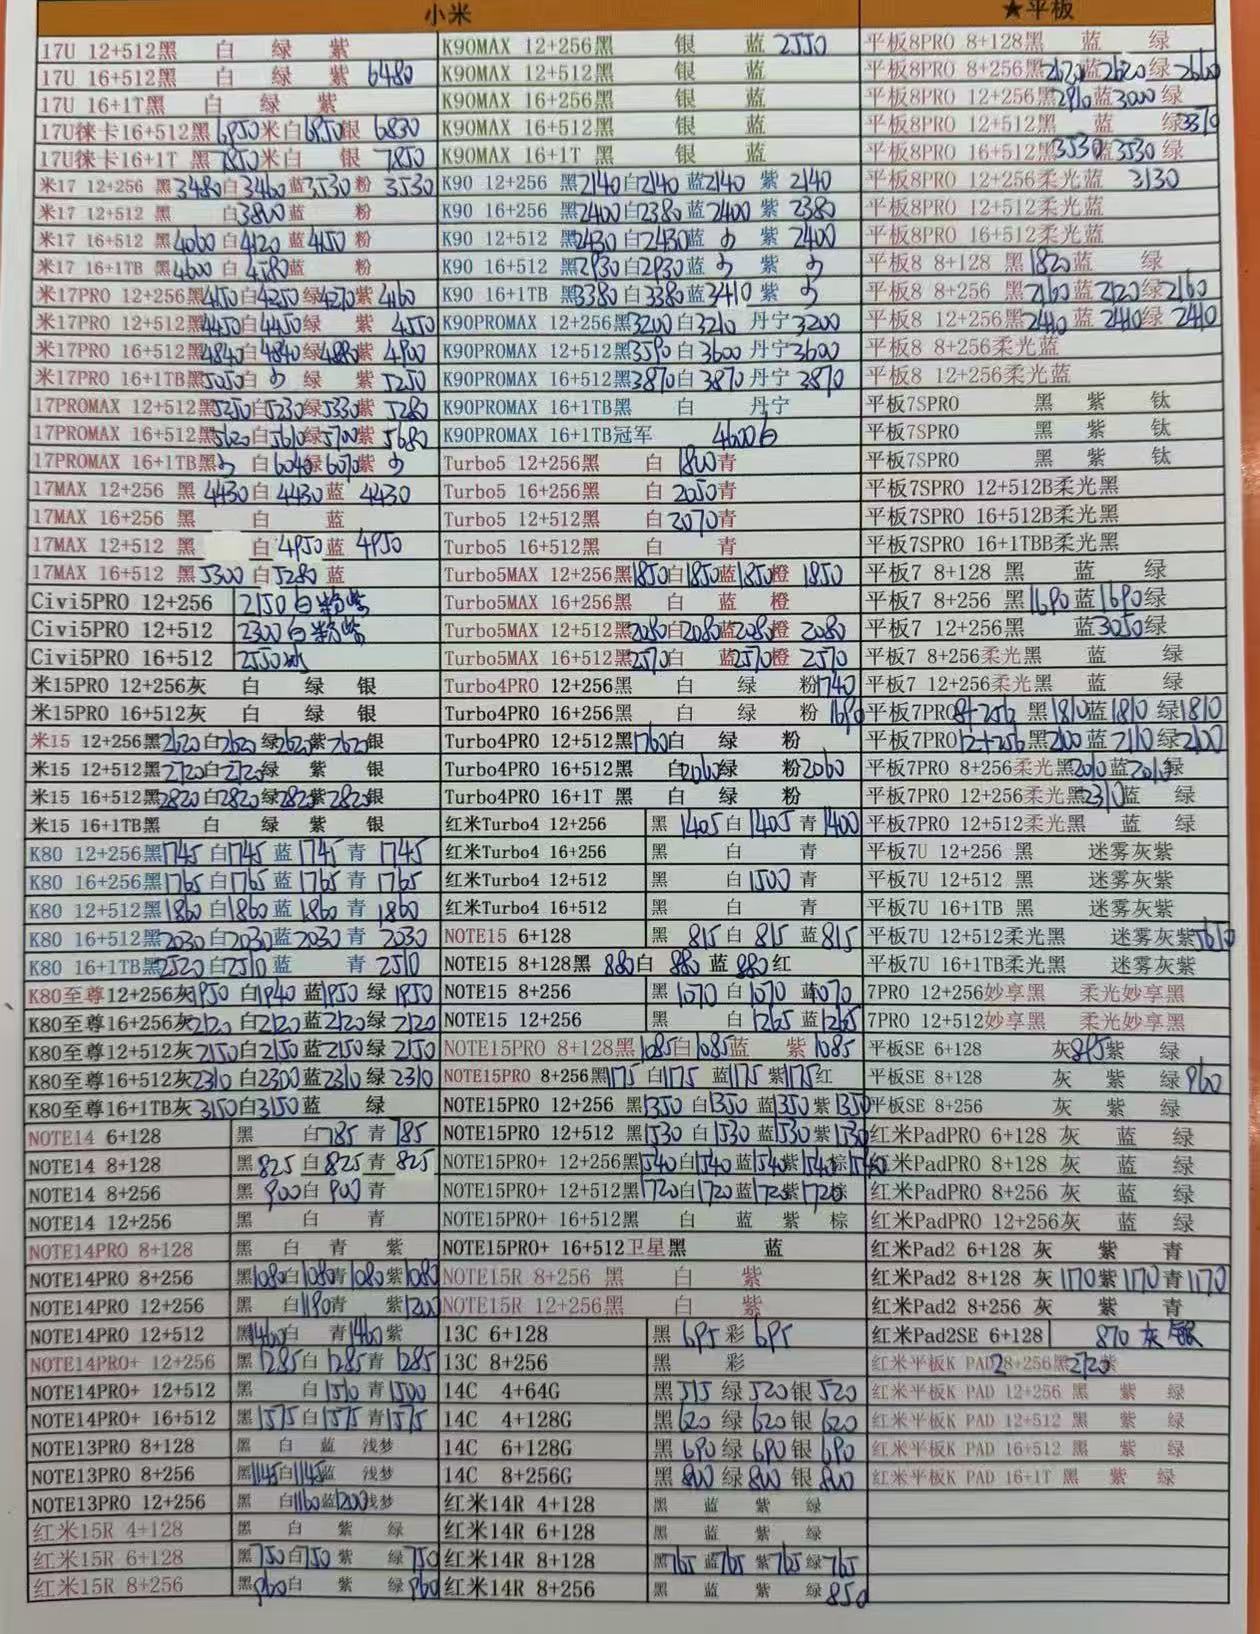 小米
17U 12+512黑 白 绿 紫
17U 16+512黑 白 绿 紫 6480
17U 16+1T黑 白 绿 紫
17U徕卡16+512黑6950米白6950银 6830
17U徕卡16+1T 黑7850米白 银 7850
米17 12+256 黑3480白3460蓝3530粉 3530
米17 12+512 黑 白3800蓝 粉
米17 16+512 黑4060白4120蓝4150粉
米17 16+1TB 黑4600白4580蓝 粉
米17PRO 12+256黑4150白4250绿4270紫4160
米17PRO 12+512黑4450白4450绿 紫 4550
米17PRO 16+512黑4840白4840绿4880紫 4900
米17PRO 16+1TB黑5050白 绿 紫 5250
17PROMAX 12+512黑5250白5230绿5330紫 5280
17PROMAX 16+512黑5620白5610绿5700紫 5680
17PROMAX 16+1TB黑 白6040绿6070紫
17MAX 12+256 黑 4430白 4430 蓝 4430
17MAX 16+256 黑 白 蓝
17MAX 12+512 黑 白 4950蓝 4950
17MAX 16+512 黑 5300 白 5280 蓝
Civi5PRO 12+256 2150白粉紫
Civi5PRO 12+512 2300白粉紫
Civi5PRO 16+512 2550
米15PRO 12+256灰 白 绿 银
米15PRO 16+512灰 白 绿 银
米15 12+256黑2620白2620 绿2620紫2620银
米15 12+512黑2720白2720绿 紫 银
米15 16+512黑2820白2820绿2820紫2820银
米15 16+1TB黑 白 绿 紫 银
K80 12+256黑1745白1745蓝 1745青 1745
K80 16+256黑1765白1765蓝 1765青 1765
K80 12+512黑1860白1860蓝 1860青 1860
K80 16+512黑2030白2030蓝 2030 青 2030
K80 16+1TB黑2520白2510蓝 青 2510
K80至尊12+256灰1950白1940蓝1950绿 1950
K80至尊16+256灰2120白2120蓝2120绿 2120
K80至尊12+512灰2150白2150蓝2150绿 2150
K80至尊16+512灰2310白2300蓝2310绿 2310
K80至尊16+1TB灰3150白3150蓝 绿
NOTE14 6+128 黑 白785青 785
NOTE14 8+128 黑825白825青 825
NOTE14 8+256 黑 900白 900 青
NOTE14 12+256 黑 白 青
NOTE14PRO 8+128 黑 白 青 紫
NOTE14PRO 8+256 黑1080白1080青1080紫1080
NOTE14PRO 12+256 黑 白1190青 紫1200
NOTE14PRO 12+512 黑1460白 青1460紫
NOTE14PRO+ 12+256 黑1285白1285青1285
NOTE14PRO+ 12+512 黑 白1510青1500
NOTE14PRO+ 16+512 黑1575白1575青1575
NOTE13PRO 8+128 黑 白 蓝 浅梦
NOTE13PRO 8+256 黑1145白1145蓝 浅梦
NOTE13PRO 12+256 黑 白1160蓝1200浅梦
红米15R 4+128 黑 白 紫 绿
红米15R 6+128 黑750白750紫 绿750
红米15R 8+256 黑960白 紫 绿960
K90MAX 12+256黑 银 蓝 2550
K90MAX 12+512黑 银 蓝
K90MAX 16+256黑 银 蓝
K90MAX 16+512黑 银 蓝
K90MAX 16+1T 黑 银 蓝
K90 12+256 黑2140白2140蓝2140 紫 2140
K90 16+256 黑2400白2380蓝2400 紫 2380
K90 12+512 黑2430白2430蓝 紫 2400
K90 16+512 黑2930白2930蓝 紫
K90 16+1TB 黑3380白3380蓝3410 紫
K90PROMAX 12+256黑3200白3210 丹宁3200
K90PROMAX 12+512黑3590白3600 丹宁3600
K90PROMAX 16+512黑3870白3870 丹宁 3870
K90PROMAX 16+1TB黑 白 丹宁
K90PROMAX 16+1TB冠军 4600白
Turbo5 12+256黑 白 1800青
Turbo5 16+256黑 白 2050青
Turbo5 12+512黑 白 2070青
Turbo5 16+512黑 白 青
Turbo5MAX 12+256黑1850白1850蓝1850橙 1850
Turbo5MAX 16+256黑 白 蓝 橙
Turbo5MAX 12+512黑2080白2080蓝2080橙 2080
Turbo5MAX 16+512黑2570白 蓝2570橙 2570
Turbo4PRO 12+256黑 白 绿 粉1740
Turbo4PRO 16+256黑 白 绿 粉 1690
Turbo4PRO 12+512黑1760白 绿 粉
Turbo4PRO 16+512黑 白2060绿 粉2060
Turbo4PRO 16+1T 黑 白 绿 粉
红米Turbo4 12+256 黑 1405白1405青1400
红米Turbo4 16+256 黑 白 青
红米Turbo4 12+512 黑 白1500青
红米Turbo4 16+512 黑 白 青
NOTE15 6+128 黑 815白 815 蓝815
NOTE15 8+128黑 880白 880 蓝 880红
NOTE15 8+256 黑1070白1070 蓝1070
NOTE15 12+256 黑 白1265蓝1265
NOTE15PRO 8+128黑1085白1085蓝 紫1085
NOTE15PRO 8+256黑1175白1175 蓝1175紫1175红
NOTE15PRO 12+256 黑1350白1350蓝1350紫1350
NOTE15PRO 12+512 黑1530白1530蓝1530紫1530
NOTE15PRO+ 12+256黑1540白1540蓝1540紫1540棕1540
NOTE15PRO+ 12+512黑1720白1720蓝1720紫1720棕
NOTE15PRO+ 16+512黑 白 蓝 紫 棕
NOTE15PRO+ 16+512卫星黑 蓝
NOTE15R 8+256 黑 白 紫
NOTE15R 12+256黑 白 紫
13C 6+128 黑 695 彩 695
13C 8+256 黑 彩
14C 4+64G 黑515 绿520银520
14C 4+128G 黑620 绿620银620
14C 6+128G 黑690 绿690银690
14C 8+256G 黑800 绿800银800
红米14R 4+128 黑 蓝 紫 绿
红米14R 6+128 黑 蓝 紫 绿
红米14R 8+128 黑765蓝765紫765绿765
红米14R 8+256 黑 蓝 紫 绿850
★平板
平板8PRO 8+128黑 蓝 绿
平板8PRO 8+256黑2620蓝2620绿2660
平板8PRO 12+256黑2910蓝3000绿
平板8PRO 12+512黑 蓝 绿3370
平板8PRO 16+512黑3530蓝3530绿
平板8PRO 12+256柔光蓝 3130
平板8PRO 12+512柔光蓝
平板8PRO 16+512柔光蓝
平板8 8+128 黑1820蓝 绿
平板8 8+256 黑2160蓝2120绿2160
平板8 12+256黑2440蓝 2440绿 2440
平板8 8+256柔光蓝
平板8 12+256柔光蓝
平板7SPRO 黑 紫 钛
平板7SPRO 黑 紫 钛
平板7SPRO 黑 紫 钛
平板7SPRO 12+512B柔光黑
平板7SPRO 16+512B柔光黑
平板7SPRO 16+1TBB柔光黑
平板7 8+128 黑 蓝 绿
平板7 8+256 黑1690蓝1690绿
平板7 12+256黑 蓝3050绿
平板7 8+256柔光黑 蓝 绿
平板7 12+256柔光黑 蓝 绿
平板7PRO8+256 黑1810蓝1810 绿1810
平板7PRO12+256黑2100蓝2110绿2100
平板7PRO 8+256柔光黑2010蓝2010绿
平板7PRO 12+256柔光黑2310蓝 绿
平板7PRO 12+512柔光黑 蓝 绿
平板7U 12+256 黑 迷雾灰紫
平板7U 12+512 黑 迷雾灰紫
平板7U 16+1TB 黑 迷雾灰紫
平板7U 12+512柔光黑 迷雾灰紫5610
平板7U 16+1TB柔光黑 迷雾灰紫
7PRO 12+256妙享黑 柔光妙享黑
7PRO 12+512妙享黑 柔光妙享黑
平板SE 6+128 灰895紫 绿
平板SE 8+128 灰 紫 绿960
平板SE 8+256 灰 紫 绿
红米PadPRO 6+128 灰 蓝 绿
红米PadPRO 8+128 灰 蓝 绿
红米PadPRO 8+256 灰 蓝 绿
红米PadPRO 12+256灰 蓝 绿
红米Pad2 6+128 灰 紫 青
红米Pad2 8+128 灰 1170紫1170青1170
红米Pad2 8+256 灰 紫 青
红米Pad2SE 6+128 870 灰 银
红米平板K PAD28+256黑2720紫
红米平板K PAD 12+256 黑 紫 绿
红米平板K PAD 12+512 黑 紫 绿
红米平板K PAD 16+512 黑 紫 绿
红米平板K PAD 16+1T 黑 紫 绿